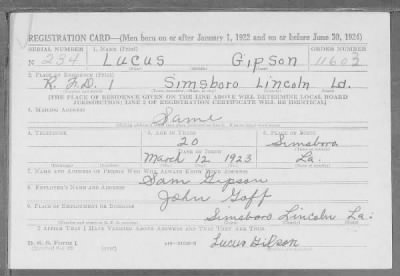 REGISTRATION CARD—(Men born on or after January 1, 1922 and on or before June 30, 1924)
SERIAL NUMBER 1. NAME (Print) ORDER NUMBER
N 234 Lucus Gipson 11603
2. PLACE OF RESIDENCE (Print)
R.F.D. 1 Simsboro Lincoln La.
[THE PLACE OF RESIDENCE GIVEN ON THE LINE ABOVE WILL DETERMINE LOCAL BOARD
JURISDICTION; LINE 2 OF REGISTRATION CERTIFICATE WILL BE IDENTICAL]
3. MAILING ADDRESS
Same
4. TELEPHONE 5. AGE IN YEARS 6. PLACE OF BIRTH
20 Simsboro
DATE OF BIRTH
March 12 1923 La.
7. NAME AND ADDRESS OF PERSON WHO WILL ALWAYS KNOW YOUR ADDRESS
Sam Gipson
8. EMPLOYER'S NAME AND ADDRESS
John Goff
9. PLACE OF EMPLOYMENT OR BUSINESS
Simsboro Lincoln La.
I AFFIRM THAT I HAVE VERIFIED ABOVE ANSWERS AND THAT THEY ARE TRUE.
D. S. S. Form 1
Lucus Gibson